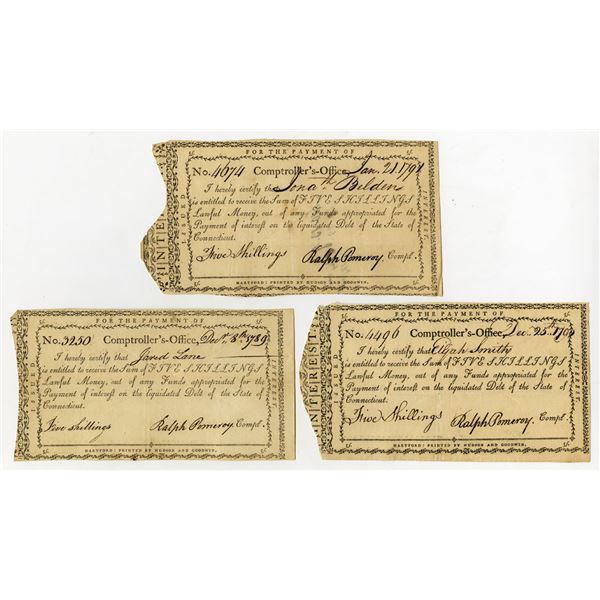 FOR THE PAYMENT OF
5s.
INTE
ISSUED
INTEREST.
No. 4074 Comptroller's-Office, Jan. 21. 179
I hereby certify that Jonath. Belden
is entitled to receive the Sum of FIVE SHILLINGS
Lawful Money, out of any Funds appropriated for the
Payment of interest on the liquidated Debt of the State of
Connecticut.
Five Shillings Ralph Pomeroy. Compt.
HARTFORD: PRINTED BY HUDSON AND GOODWIN.
FOR THE PAYMENT OF
5s.
ISSUED
INTEREST.
No. 3250 Comptroller's-Office, Decr. 8th 1789
I hereby certify that Jared Lane
is entitled to receive the Sum of FIVE SHILLINGS
Lawful Money, out of any Funds appropriated for the
Payment of interest on the liquidated Debt of the State of
Connecticut.
Five shillings Ralph Pomeroy. Compt.
HARTFORD: PRINTED BY HUDSON AND GOODWIN.
FOR THE PAYMENT OF
5s.
INTEREST
ISSUED
INTEREST.
No. 4496 Comptroller's-Office, Dec. 25th
I hereby certify that Elijah Smith
is entitled to receive the Sum of FIVE SHILLINGS
Lawful Money, out of any Funds appropriated for the
Payment of interest on the liquidated Debt of the State of
Connecticut.
Five Shillings Ralph Pomeroy. Compt.
HARTFORD: PRINTED BY HUDSON AND GOODWIN.